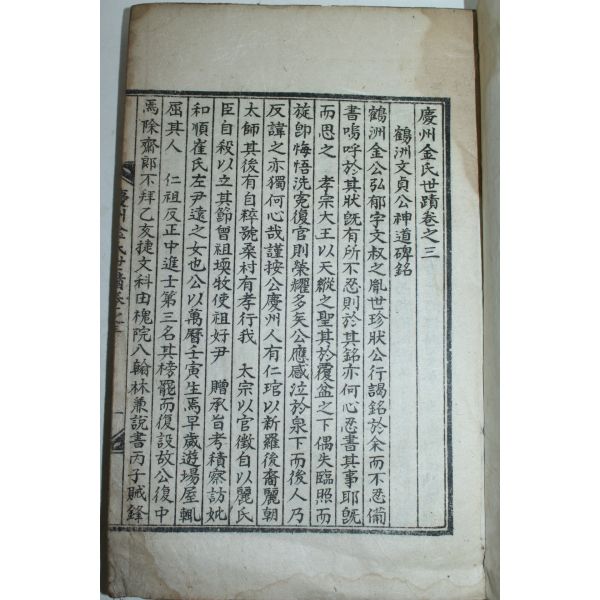 慶州金氏世蹟卷之三
鶴洲文貞公神道碑銘
鶴洲金公弘郁字文叔之胤世珍狀公行謁銘於余而不忍備
書嗚呼於其狀旣有所不忍則於其銘亦何心忍書其事耶旣
而思之 孝宗大王以天縱之聖其於覆盆之下偶失臨照而
旋卽悔悟洗寃復官則榮耀多矣公應感泣於泉下而後人乃
反諱之亦獨何心哉謹按公慶州人有仁琯以新羅後裔麗朝
太師其後有自粹號桑村有孝行我 太宗以官徵自以麗氏
臣自殺以立其節曾祖堧牧使祖好尹 贈承旨考積察訪妣
和順崔氏左尹遠之女也公以萬曆壬寅生焉早歲遊場屋輒
屈其人 仁祖反正中進士第三名其榜罷而復設故公復中
焉除齋郞不拜乙亥捷文科由槐院入翰林兼說書丙子賊鋒
慶州金氏世蹟卷之三 一